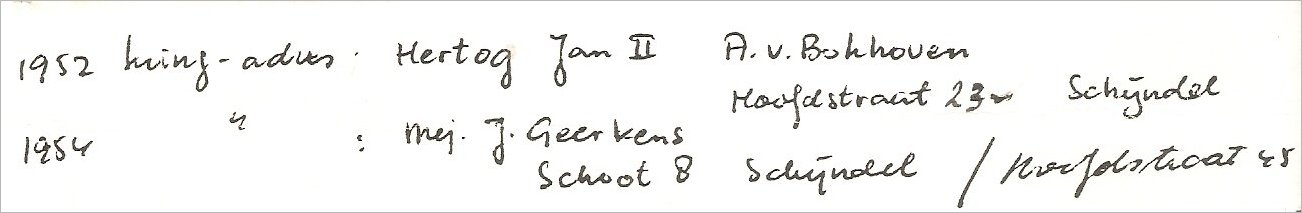 1952 kring-adres: Hertog Jan II A. v. Bokhoven
Hoofdstraat 23 Schijndel
1954 " : Mej. J. Geerkens
Schoot 8 Schijndel / Hoofdstraat 45